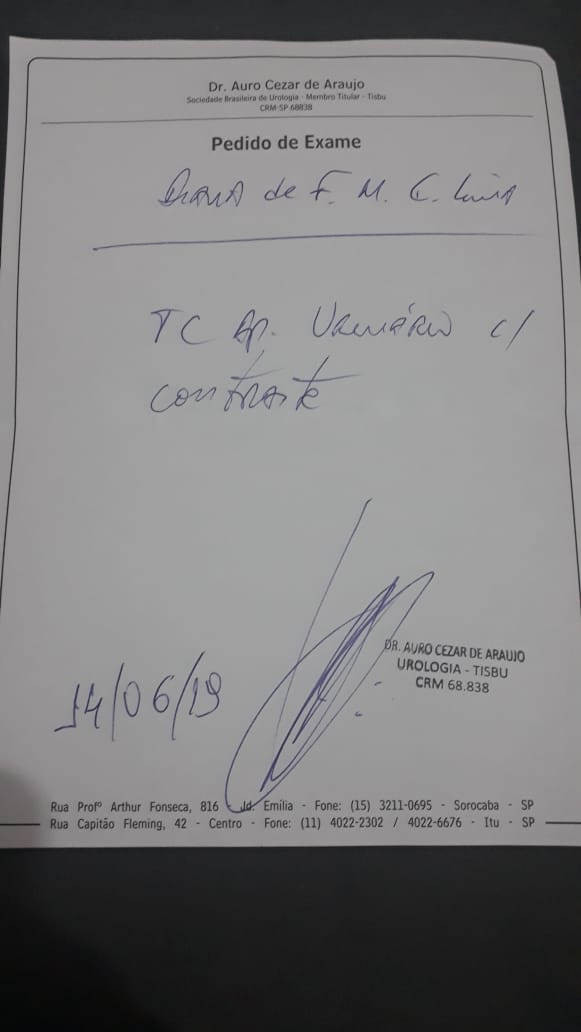 Dr. Auro Cezar de Araujo
Sociedade Brasileira de Urologia - Membro Titular - Tisbu
CRM-SP 68838
Pedido de Exame
de F. M. C. Lima
TC Ap. Urinário c/
contraste
14/06/19
DR. AURO CEZAR DE ARAUJO
UROLOGIA - TISBU
CRM 68.838
Rua Profº Arthur Fonseca, 816 - Jd. Emília - Fone: (15) 3211-0695 - Sorocaba - SP
Rua Capitão Fleming, 42 - Centro - Fone: (11) 4022-2302 / 4022-6676 - Itu - SP